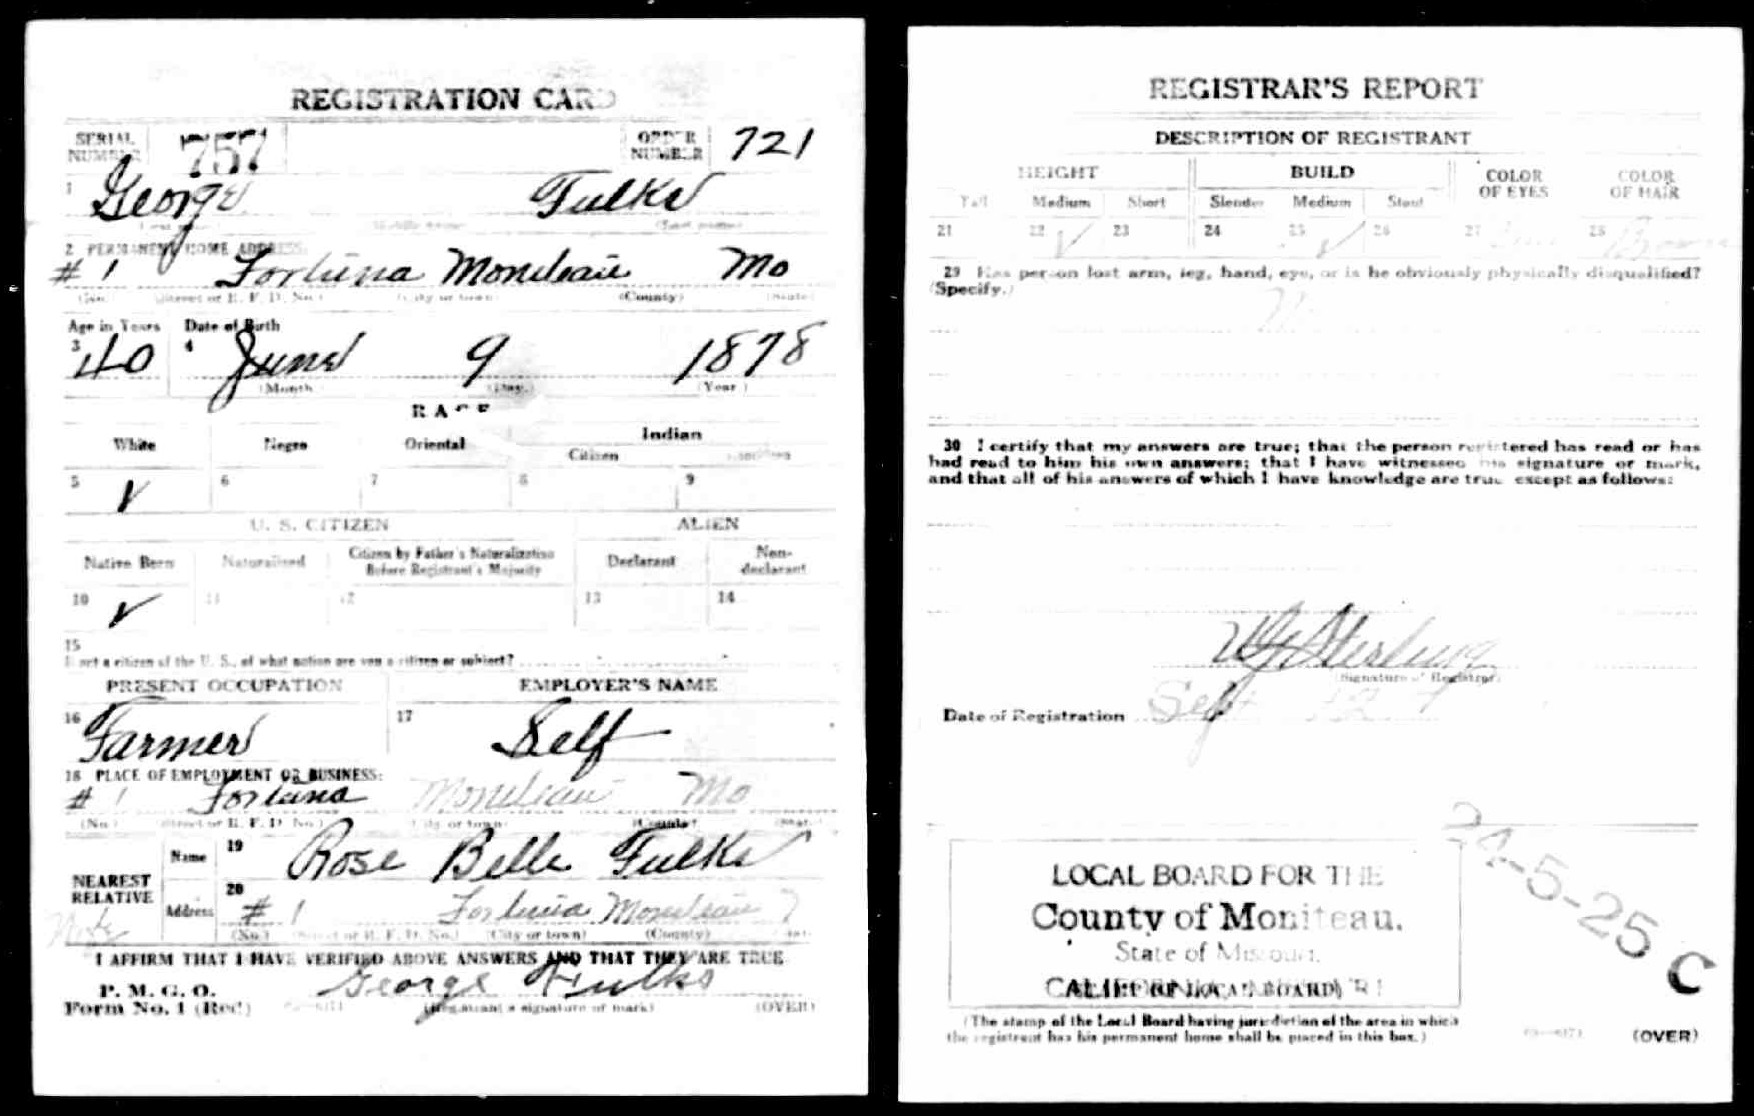 REGISTRATION CARD
SERIAL NUMBER 757 ORDER NUMBER 721
1 George Fulks
(First name) (Middle name) (Last name)
2 PERMANENT HOME ADDRESS:
# 1 Fortuna Moniteau Mo
(No.) (Street or R. F. D. No.) (City or town) (County) (State)
Age in Years Date of Birth
3 40 4 June 9 1878
(Month) (Day.) (Year)
RACE
White Negro Oriental Indian
Citizen
5 ✓ 6 7 8 9
U. S. CITIZEN ALIEN
Native Born Naturalized Citizen by Father's Naturalization Before Registrant's Majority Declarant Non-declarant
10 ✓ 11 12 13 14
15
If not a citizen of the U. S., of what nation are you a citizen or subject?
PRESENT OCCUPATION EMPLOYER'S NAME
16 Farmer 17 Self
18 PLACE OF EMPLOYMENT OR BUSINESS:
# 1 Fortuna Moniteau Mo
(No.) (Street or R. F. D. No.) (City or town) (County) (State)
NEAREST RELATIVE Name 19 Rose Belle Fulks
Address 20 # 1 Fortuna Moniteau
(No.) (Street or R. F. D. No.) (City or town) (County) (State)
I AFFIRM THAT I HAVE VERIFIED ABOVE ANSWERS AND THAT THEY ARE TRUE
P. M. G. O.
Form No. 1 (Red) George Fulks
(Registrant's signature or mark) (OVER)
REGISTRAR'S REPORT
DESCRIPTION OF REGISTRANT
HEIGHT BUILD COLOR OF EYES COLOR OF HAIR
Tall Medium Short Slender Medium Stout
21 22 ✓ 23 24 25 ✓ 26 27 28 Brown
29 Has person lost arm, leg, hand, eye, or is he obviously physically disqualified?
(Specify.)
30 I certify that my answers are true; that the person registered has read or has
had read to him his own answers; that I have witnessed his signature or mark,
and that all of his answers of which I have knowledge are true, except as follows:
Sterling
(Signature of Registrar)
Date of Registration Sept 12
24-5-25 C
LOCAL BOARD FOR THE
County of Moniteau.
State of Missouri.
(STAMP OF LOCAL BOARD)
(The stamp of the Local Board having jurisdiction of the area in which
the registrant has his permanent home shall be placed in this box.)
(OVER)